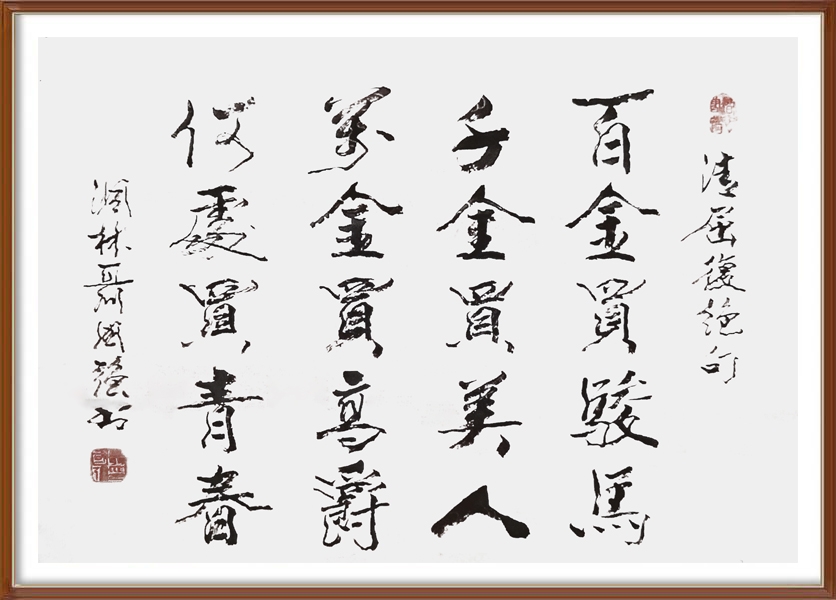 清屈復絕句
百金買駿馬
千金買美人
萬金買高爵
何處買青春
林聶成
書